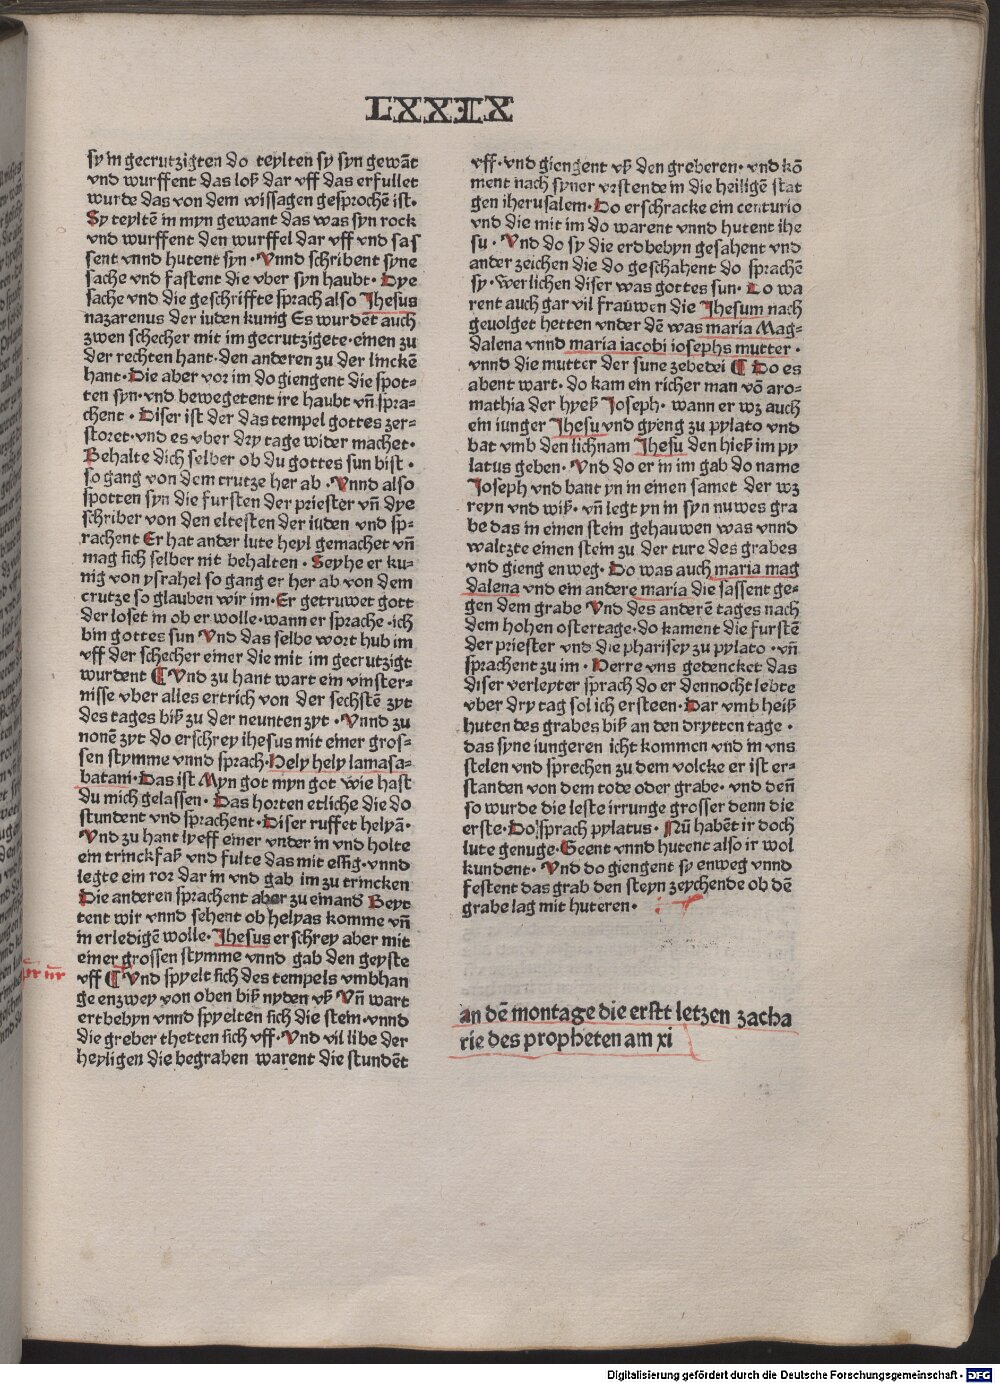 LXXIX
sy in gecrutzigten do teylten sy syn gewãt
vnd wurffent das loß dar vff das erfullet
wurde das von dem wissagen gesprochẽ ist·
Sy teyltẽ in myn gewant das was syn rock
vnd wurffent den wurffel dar vff vnd sas
sent vnnd hutent syn · Vnnd schribent syne
sache vnd fastent die vber syn haubt· Dye
sache vnd die geschriffte sprach also Jhesus
nazarenus der iuden kunig Es wurdẽt auch
zwen schecher mit im gecrutzigete· einen zu
der rechten hant· den anderen zu der linckẽ
hant· Die aber vor im do giengent die spot-
ten syn· vnd bewegetent ire haubt vñ spra-
chent · Diser ist der das tempel gottes zer-
storet· vnd es vber dry tage wider machet·
Behalte dich selber ob du gottes sun bist ·
so gang von dem crutze her ab · Vnnd also
spotten syn die fursten der priester vñ dye
schriber von den eltesten der iuden vnd sp-
rachent Er hat ander lute heyl gemachet vñ
mag sich selber nit behalten · Seyhe er ku-
nig von ysrahel so gang er her ab von dem
crutze so glauben wir im· Er getruwet gott
der loset in ob er wolle· wann er sprache · ich
bin gottes sun Vnd das selbe wort hub im
vff der schecher einer die mit im gecrutzigt
wurdent ¶ Vnd zu hant wart ein vinster-
nisse vber alles ertrich von der sechstẽ zyt
des tages biß zu der neunten zyt · Vnnd zu
nonẽ zyt do erschrey ihesus mit einer gros-
sen stymme vnnd sprach· Hely hely lamasa-
batani· Das ist Myn got myn got wie hast
du mich gelassen· Das horten etliche die do
stundent vnd sprachent· Diser ruffet helyã·
Vnd zu hant lyeff einer vnder in vnd holte
ein trinckfaß vnd fulte das mit essig· vnnd
legte ein ror dar in vnd gab im zu trincken
Die anderen sprachent aber zu einand Beyt
tent wir vnnd sehent ob helyas komme vñ
in erledigẽ wolle· Jhesus erschrey aber mit
einer grossen stymme vnnd gab den geyste
vff ¶ Vnd spyelt sich des tempels vmbhan
ge enzwey von oben biß nyden vß Vñ wart
ertbebyn vnnd spyelten sich die stein· vnnd
die greber thetten sich vff· Vnd vil libe der
heyligen die begraben warent die stundẽt
vff· vnd giengent vß den greberen· vnd kõ
ment nach syner vrstende in die heiligẽ stat
gen iherusalem· Do erschracke ein centurio
vnd die mit im do warent vnnd hutent ihe
su · Vnd do sy die erdbebyn gesahent vnd
ander zeichen die do geschahent do sprachẽ
sy· werlichen diser was gottes sun· Do wa
rent auch gar vil frauwen die Jhesum nach
gevolget hetten vnder dẽ was maria Mag-
dalena vnnd maria iacobi iosephs mutter ·
vnnd die mutter der sune zebedei ¶ Do es
abent wart· do kam ein richer man võ aro-
mathia der hyeß Joseph· wann er wz auch
ein iunger Jhesu vnd gyeng zu pylato vnd
bat vmb den lichnam Jhesu den hieß im py
latus geben· Vnd do er in im gab do name
Joseph vnd bant yn in einen samet der wz
reyn vnd wiß· vñ legt yn in syn nuwes gra
be das in einen stein gehauwen was vnnd
waltzte einen stein zu der ture des grabes
vnd gieng enweg· Do was auch maria mag
dalena vnd ein andere maria die sassent ge-
gen dem grabe Vnd des anderẽ tages nach
dem hohen ostertage· do kament die furstẽ
der priester vnd die pharisey zu pylato · vñ
sprachent zu im · Herre vns gedencket das
diser verleyter sprach do er dennocht lebte
vber dry tag sol ich ersteen· Dar vmb heiß
huten des grabes biß an den drytten tage ·
das syne iungeren icht kommen vnd in vns
stelen vnd sprechen zu dem volcke er ist er-
standen von dem tode oder grabe· vnd deñ
so wurde die leste irrunge grosser denn die
erste· Do sprach pylatus· Nũ habẽt ir doch
lute genuge· Geent vnnd hutent also ir wol
kundent· Vnd do giengent sy enweg vnnd
festent das grab den steyn zeychende ob dẽ
grabe lag mit huteren·
an dẽ montage die erstt letzen zacha
rie des propheten am xi
Digitalisierung gefördert durch die Deutsche Forschungsgemeinschaft - DFG